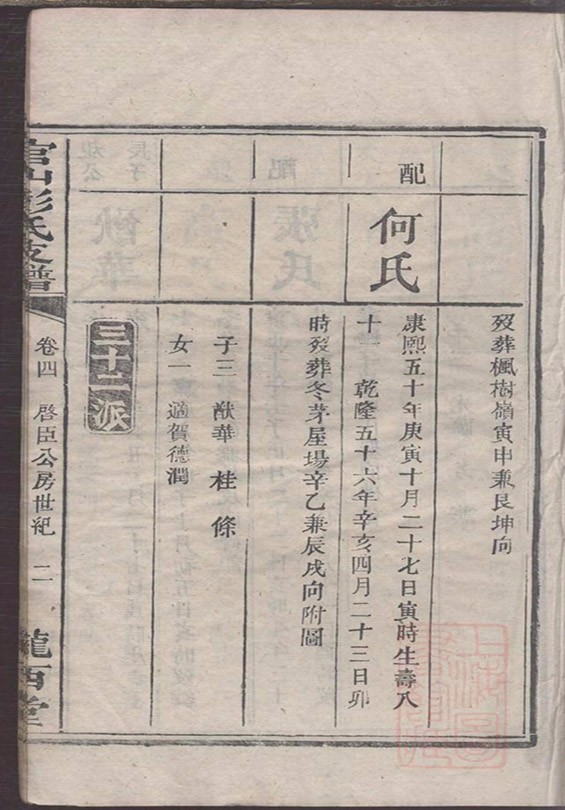 歿葬楓樹嶺寅申兼艮坤向
配
何氏
康熙五十年庚寅十月二十七日寅時生壽八
十一 乾隆五十六年辛亥四月二十三日卯
時歿葬冬茅屋場辛乙兼辰戌向附圖
子三 猷華 桂 條
女一 適賀德潤
三十二派
官山彭氏支譜
卷四 啓臣公房世紀 二
隴西堂